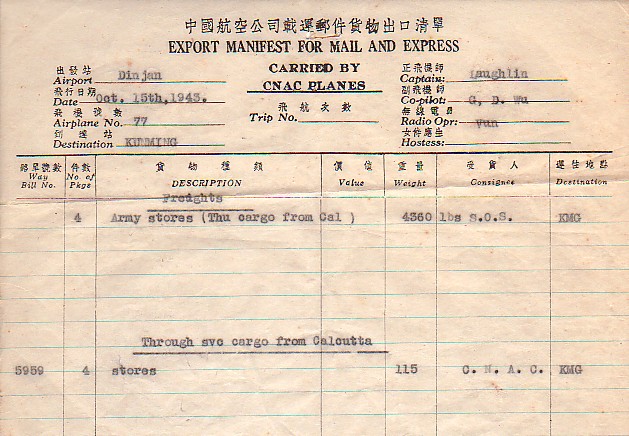 中國航空公司載運郵件貨物出口清單
EXPORT MANIFEST FOR MAIL AND EXPRESS
CARRIED BY
CNAC PLANES
出發站
Airport Dinjan
飛行日期
Date Oct. 15th,1943.
飛機號數
Airplane No. 77
到達站
Destination KUNMING
飛航次數
Trip No.
正飛機師
Captain: Laughlin
副飛機師
Co-pilot: G, D. Wu
無線電員
Radio Opr: Yun
女侍應生
Hostess:
路單號數 件數 貨物種類 價值 重量 受貨人 運往地點
Way Bill No. No. of Pkgs DESCRIPTION Value Weight Consignee Destination
Freights
4 Army stores (Thu cargo from Cal ) 4360 lbs S.O.S. KMG
Through svc cargo from Calcutta
5959 4 stores 115 C. N. A. C. KMG